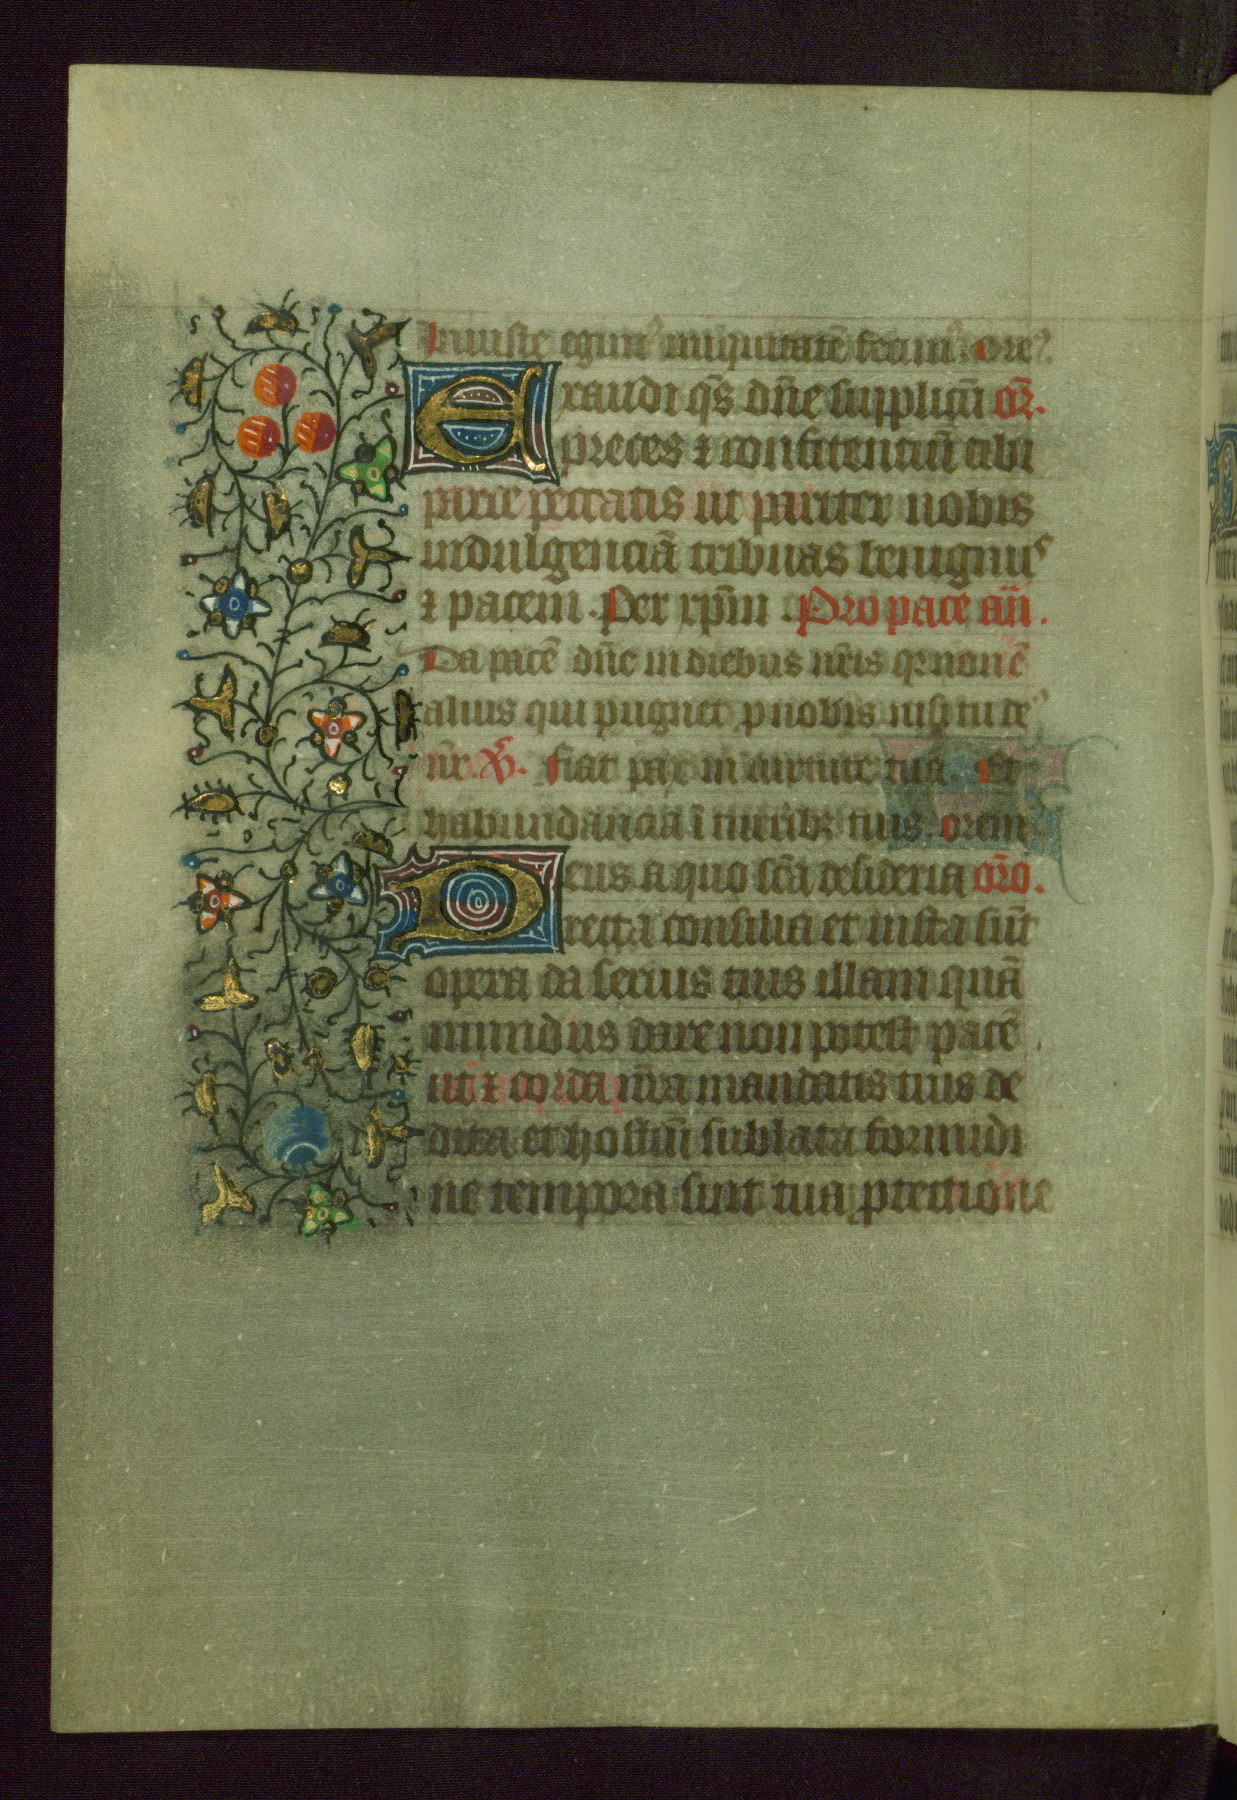 Iniuste egim᷒ iniquitatē fecim᷒ Ore᷒.
Exaudi q̄s dn̄e supplicū or̄.
preces ⁊ confitenciū tibi
parce peccatis ut pariter nobis
indulgenciā tribuas benignus
⁊ pacem. Per xp̄m. Pro pace an̄.
Da pacē dn̄e in diebus nr̄is qꝛ non ē
alius qui pugnet ꝓ nobis nisi tu de᷒
nr̄. v̄. Fiat pax in uirtute tua Et
habundancia ī turribꝫ tuis. Orem᷒
Deus a quo sc̄a desideria or̄o.
recta consilia et iusta sūt
opera da seruis tuis illam quā
mundus dare non potest pacē
ut ⁊ corda nr̄a mandatis tuis de
dita et hostiū sublata formidi
ne tempora sint tua ꝓtectione